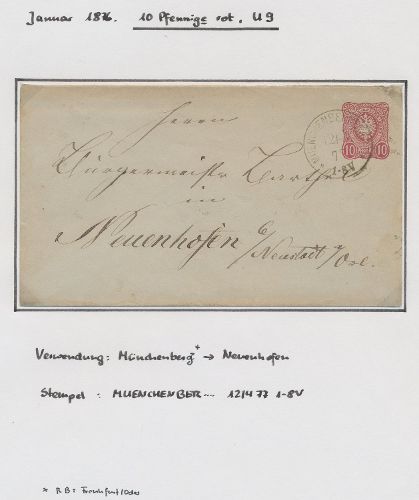 Januar 1876. 10 Pfennige rot. U9
MUENCHENBE
12/4
7
1-8V
10 10
Herrn
Bürgermeister Barthel
in
Neuenhofen b/
Neustadt a/Orl.
Verwendung: Müncheberg* → Neuenhofen
Stempel : MUENCHENBER.... 12/4 77 1-8V
* RB: Frankfurt/Oder